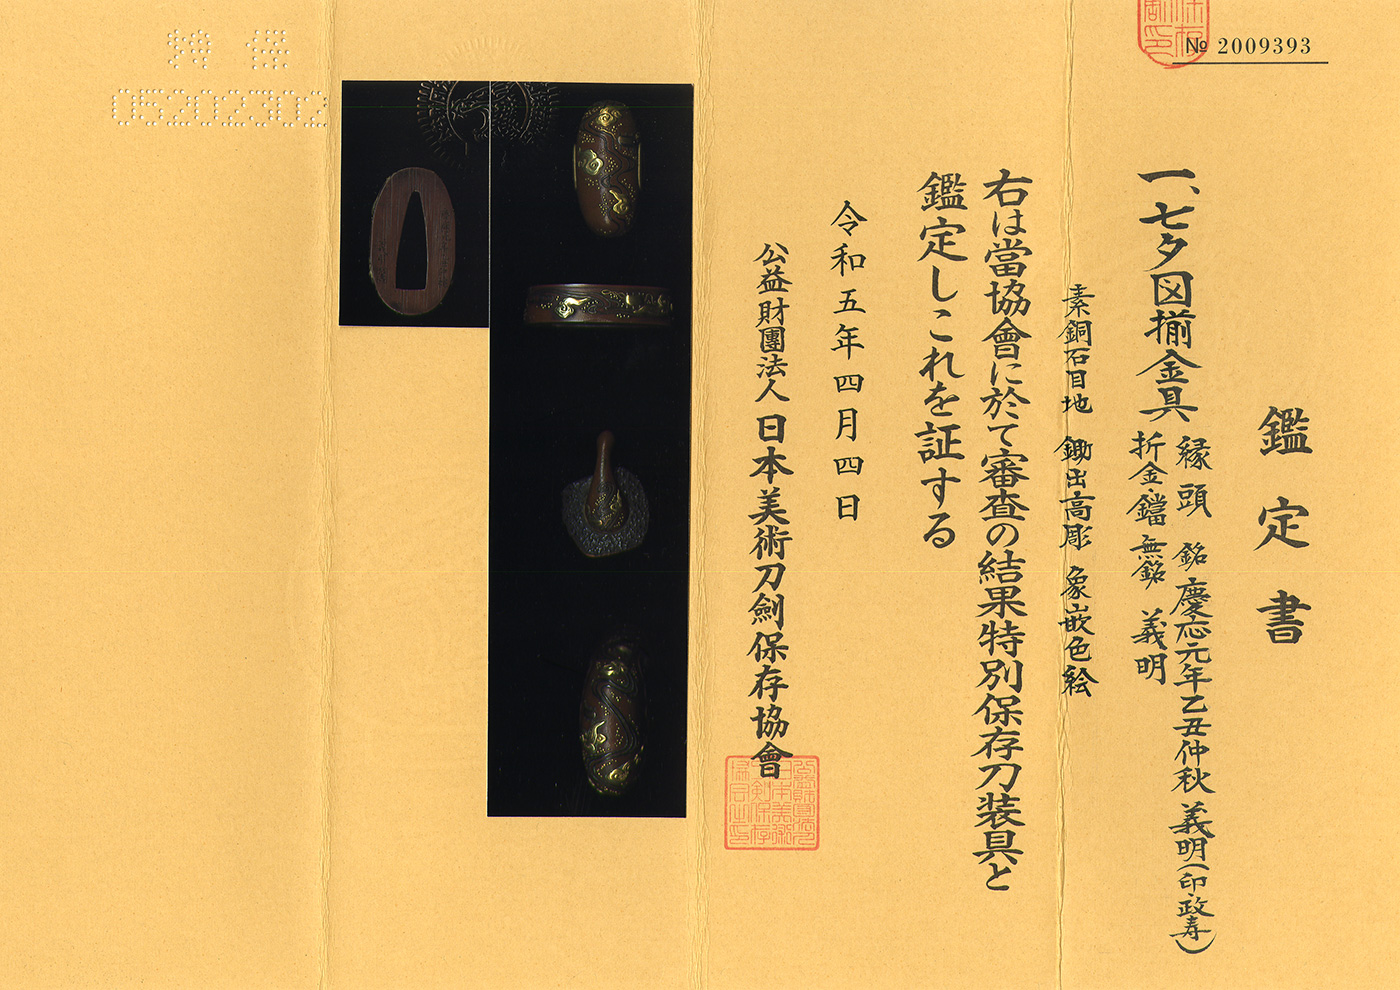 № 2009393
鑑定書
一、七夕図揃金具
縁頭 銘 慶応元年乙丑仲秋 義明(印・政寿)
折金・鐺 無銘 義明
素銅石目地 鋤出高彫 象嵌色絵
右は當協會に於て審査の結果特別保存刀装具と
鑑定しこれを証する
令和五年四月四日
公益財團法人 日本美術刀劍保存協會
特保
05202302